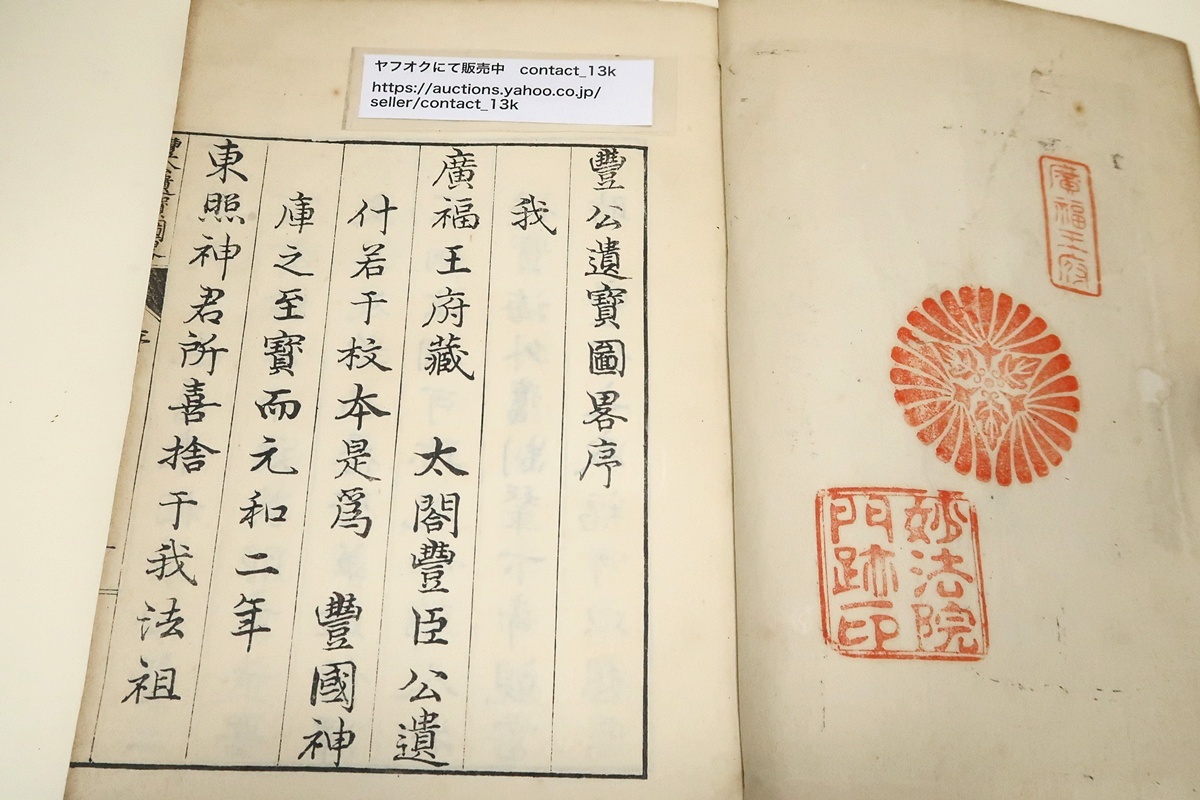 ヤフオクにて販売中　contact_13k
https://auctions.yahoo.co.jp/
seller/contact_13k
廣福王府
妙法院
門跡印
豐公遺寶圖畧序
我
廣福王府藏　太閤豐臣公遺
什若干枚本是爲　豐國神
庫之至寶而元和二年
東照神君所喜捨于我法祖